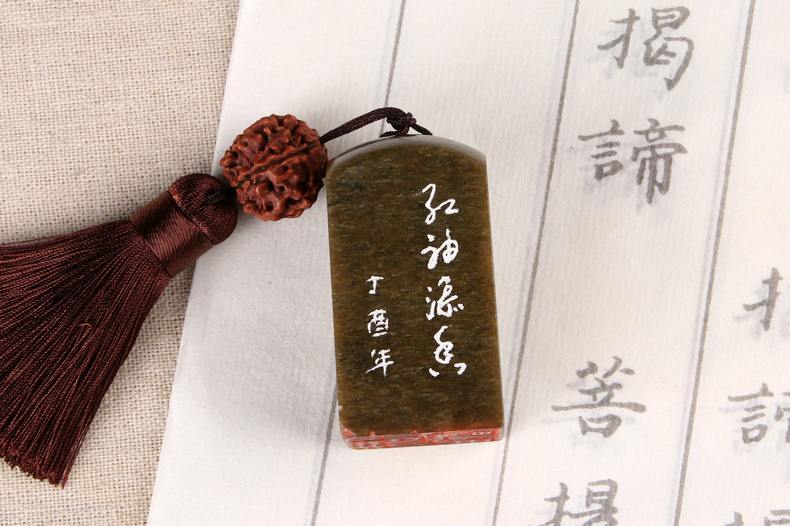 红袖添香
丁酉年
揭
諦
菩
提
揭
諦